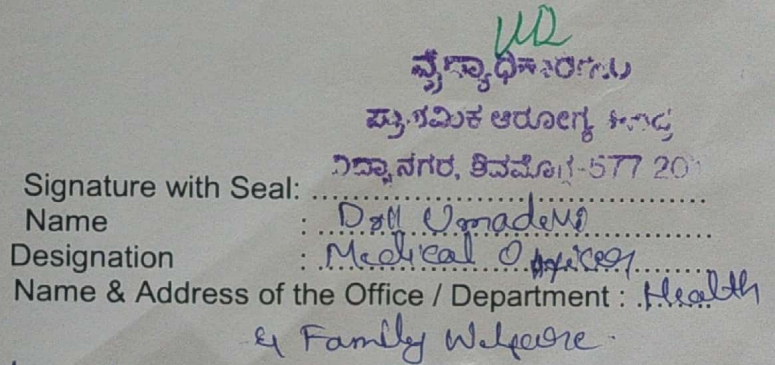 ವೈದ್ಯಾಧಿಕಾರಿಗಳು
ಪ್ರಾಥಮಿಕ ಆರೋಗ್ಯ ಕೇಂದ್ರ
ವಿದ್ಯಾನಗರ, ಶಿವಮೊಗ್ಗ-577 20
Signature with Seal:
Name : Umadevi
Designation : Medical Officer
Name & Address of the Office / Department : Health
& Family Welfare.